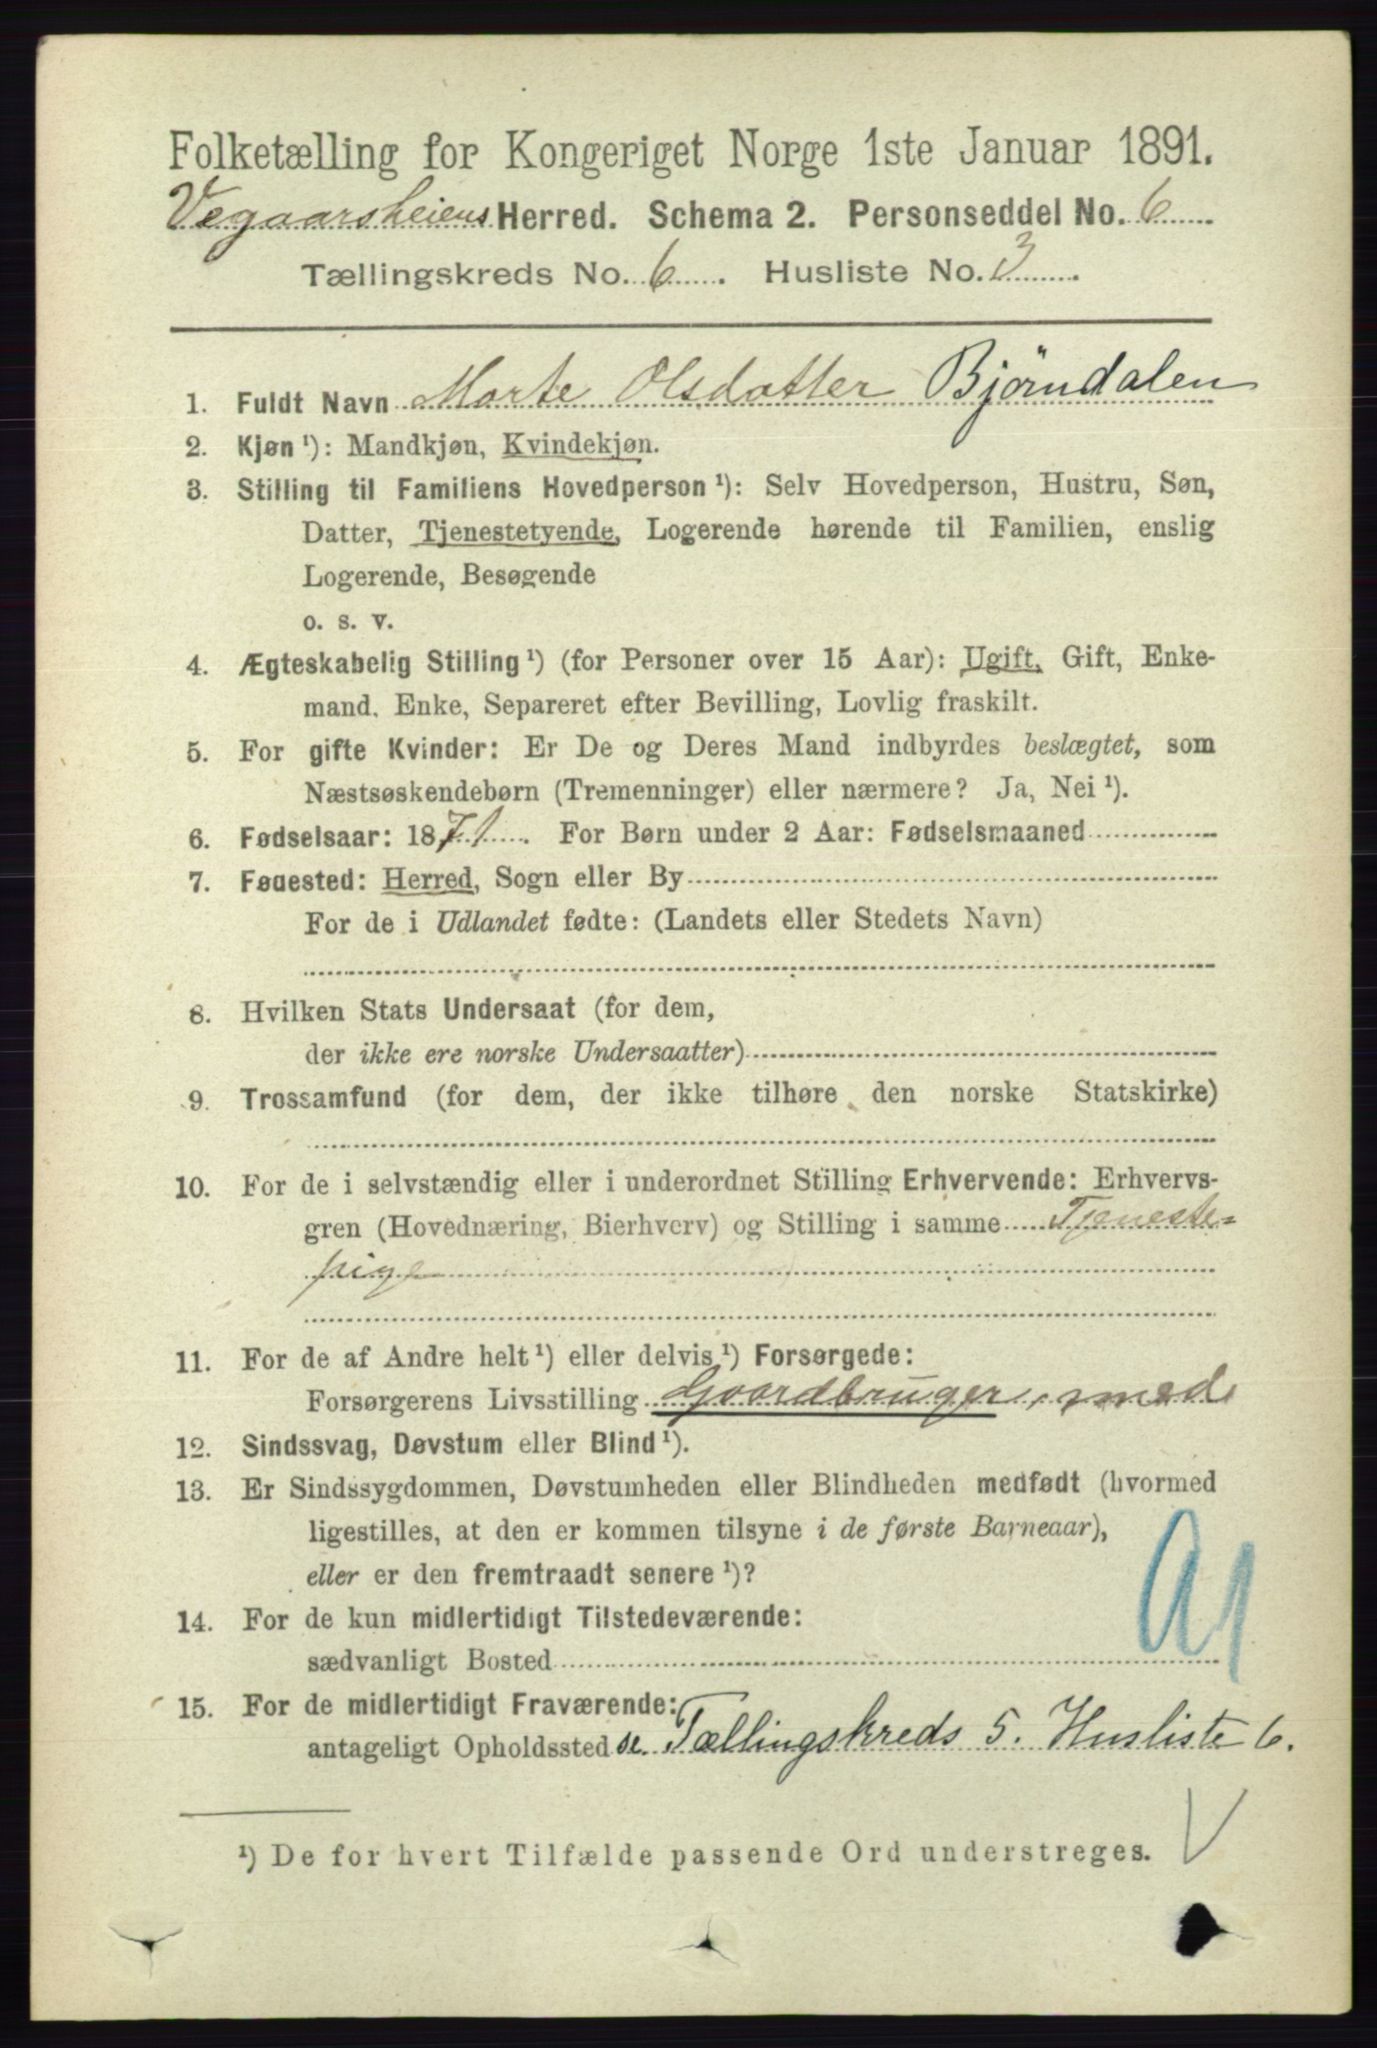 Folketælling for Kongeriget Norge 1ste Januar 1891.
Vegaarsheiens Herred. Schema 2. Personseddel No. 6
Tællingskreds No. 6. Husliste No. 3.
1. Fuldt Navn Marte Olsdatter Bjørndalen
2. Kjøn ¹): Mandkjøn, Kvindekjøn.
3. Stilling til Familiens Hovedperson ¹): Selv Hovedperson, Hustru, Søn,
Datter, Tjenestetyende, Logerende hørende til Familien, enslig
Logerende, Besøgende
o. s. v.
4. Ægteskabelig Stilling ¹) (for Personer over 15 Aar): Ugift, Gift, Enke-
mand, Enke, Separeret efter Bevilling, Lovlig fraskilt.
5. For gifte Kvinder: Er De og Deres Mand indbyrdes beslægtet, som
Næstsøskendebørn (Tremenninger) eller nærmere? Ja, Nei ¹).
6. Fødselsaar: 1871. For Børn under 2 Aar: Fødselsmaaned
7. Fødested: Herred, Sogn eller By
For de i Udlandet fødte: (Landets eller Stedets Navn)
8. Hvilken Stats Undersaat (for dem,
der ikke ere norske Undersaatter)
9. Trossamfund (for dem, der ikke tilhøre den norske Statskirke)
10. For de i selvstændig eller i underordnet Stilling Erhvervende: Erhvervs-
gren (Hovednæring, Bierhverv) og Stilling i samme Tjeneste=
pige
11. For de af Andre helt ¹) eller delvis ¹) Forsørgede:
Forsørgerens Livsstilling Gaardbruger, med
12. Sindssvag, Døvstum eller Blind ¹).
13. Er Sindssygdommen, Døvstumheden eller Blindheden medfødt (hvormed
ligestilles, at den er kommen tilsyne i de første Barneaar),
eller er den fremtraadt senere ¹)?
14. For de kun midlertidigt Tilstedeværende:
sædvanligt Bosted
15. For de midlertidigt Fraværende:
antageligt Opholdssted se Tællingskreds 5. Husliste 6.
¹) De for hvert Tilfælde passende Ord understreges.